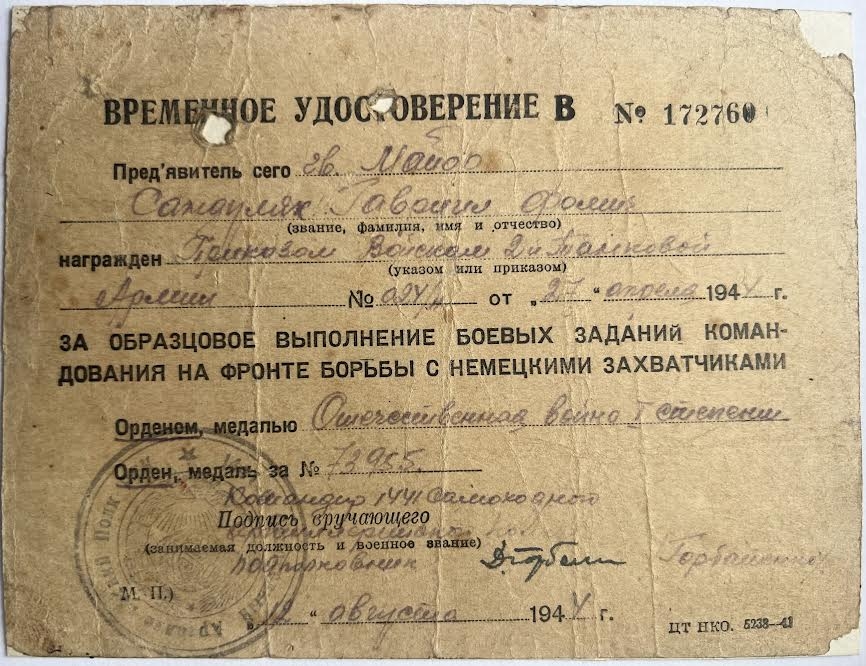 ВРЕМЕННОЕ УДОСТОВЕРЕНИЕ В № 172760
Пред'явитель сего гв. Майор
Сандуляк Гавриил Фомич
(звание, фамилия, имя и отчество)
награжден Приказом Войскам 2й Танковой
(указом или приказом)
Армии № 024/н от „27“ апреля 1944 г.
ЗА ОБРАЗЦОВОЕ ВЫПОЛНЕНИЕ БОЕВЫХ ЗАДАНИЙ КОМАН-
ДОВАНИЯ НА ФРОНТЕ БОРЬБЫ С НЕМЕЦКИМИ ЗАХВАТЧИКАМИ
Орденом, медалью Отечественная война I степени
Орден, медаль за № 73955.
Командир 1441 Самоходного
Подпись вручающего
(занимаемая должность и военное звание)
подполковник
М. П.)
„12“ августа 1944 г.
ЦТ НКО. 5238—41